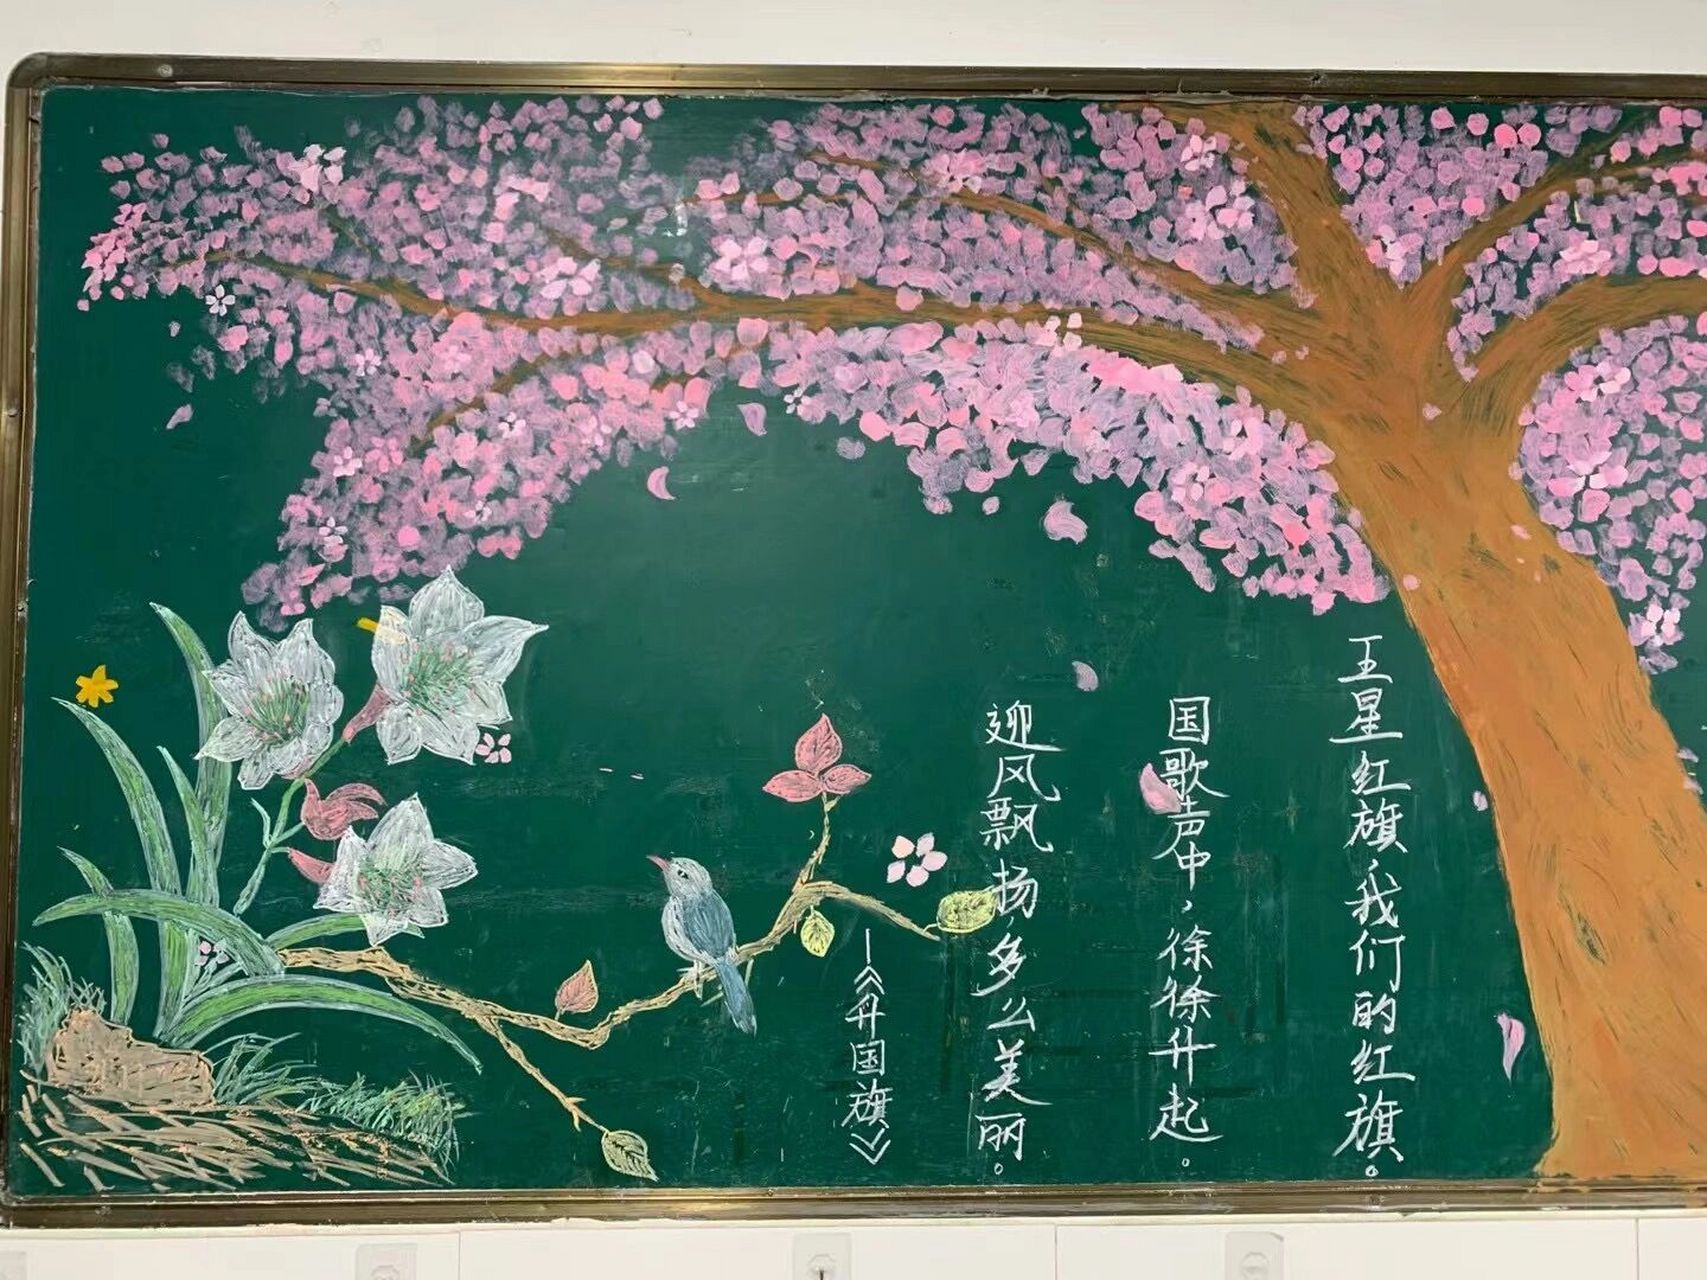 五星红旗，我们的红旗。
国歌声中，徐徐升起。
迎风飘扬，多么美丽。
—《升国旗》